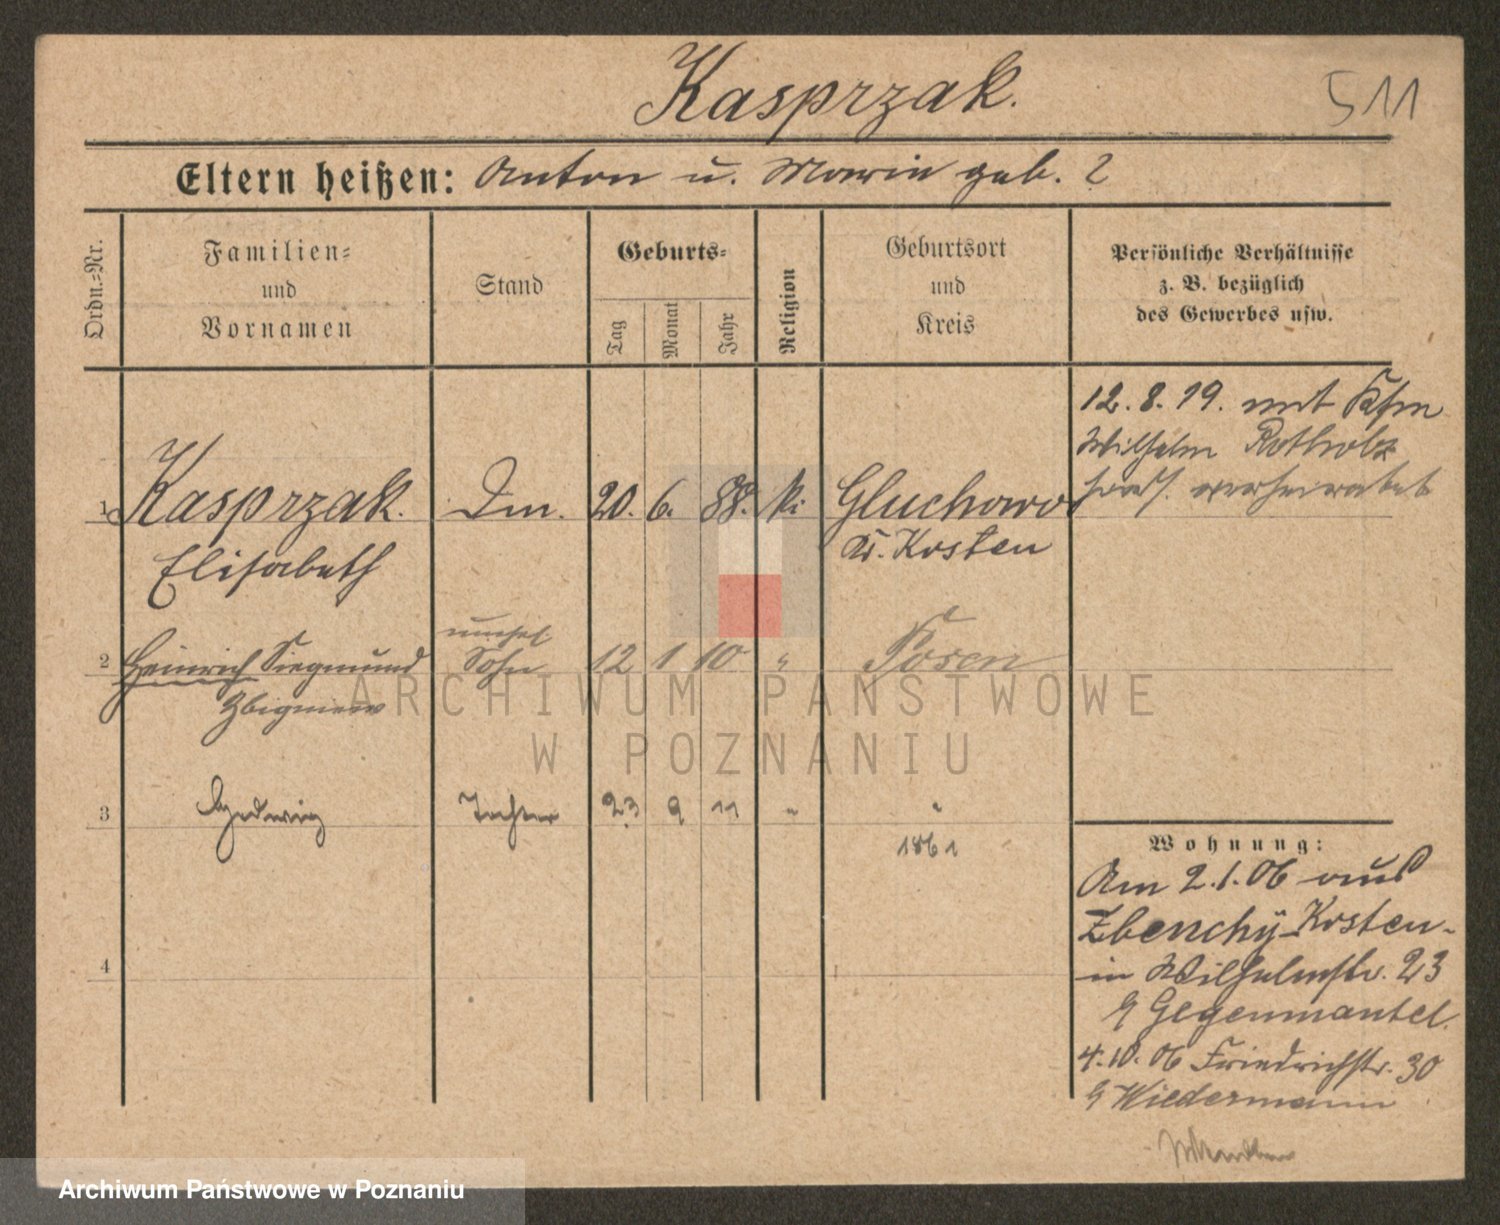 Kasprzak.
511
Eltern heißen: Anton u. Marie geb. ?
Ordn.-Nr.
Familien-
und
Vornamen
Stand
Geburts-
Tag
Monat
Jahr
Religion
Geburtsort
und
Kreis
Persönliche Verhältnisse
z. B. bezüglich
des Gewerbes usw.
12. 8. 19. mit Kfm
Wilhelm Rotholz
verheiratet
1 Kasprzak. Dm. 20. 6. 88. k. Gluchowo
Elisabeth
Kr. Kosten
unehel
2 Heinrich Siegmund Sohn 12 1 10 " Posen
Zbigniew
3 Hedwig Tochter 23 9 11 " "
1861
4
Wohnung:
Am 2. 1. 06 aus
Zbenchy-Kosten-
in Wilhelmstr. 23
b Gegenmantel.
4. 10. 06 Friedrichstr. 30
b Wiedermann
ARCHIWUM PAŃSTWOWE
W POZNANIU
Archiwum Państwowe w Poznaniu